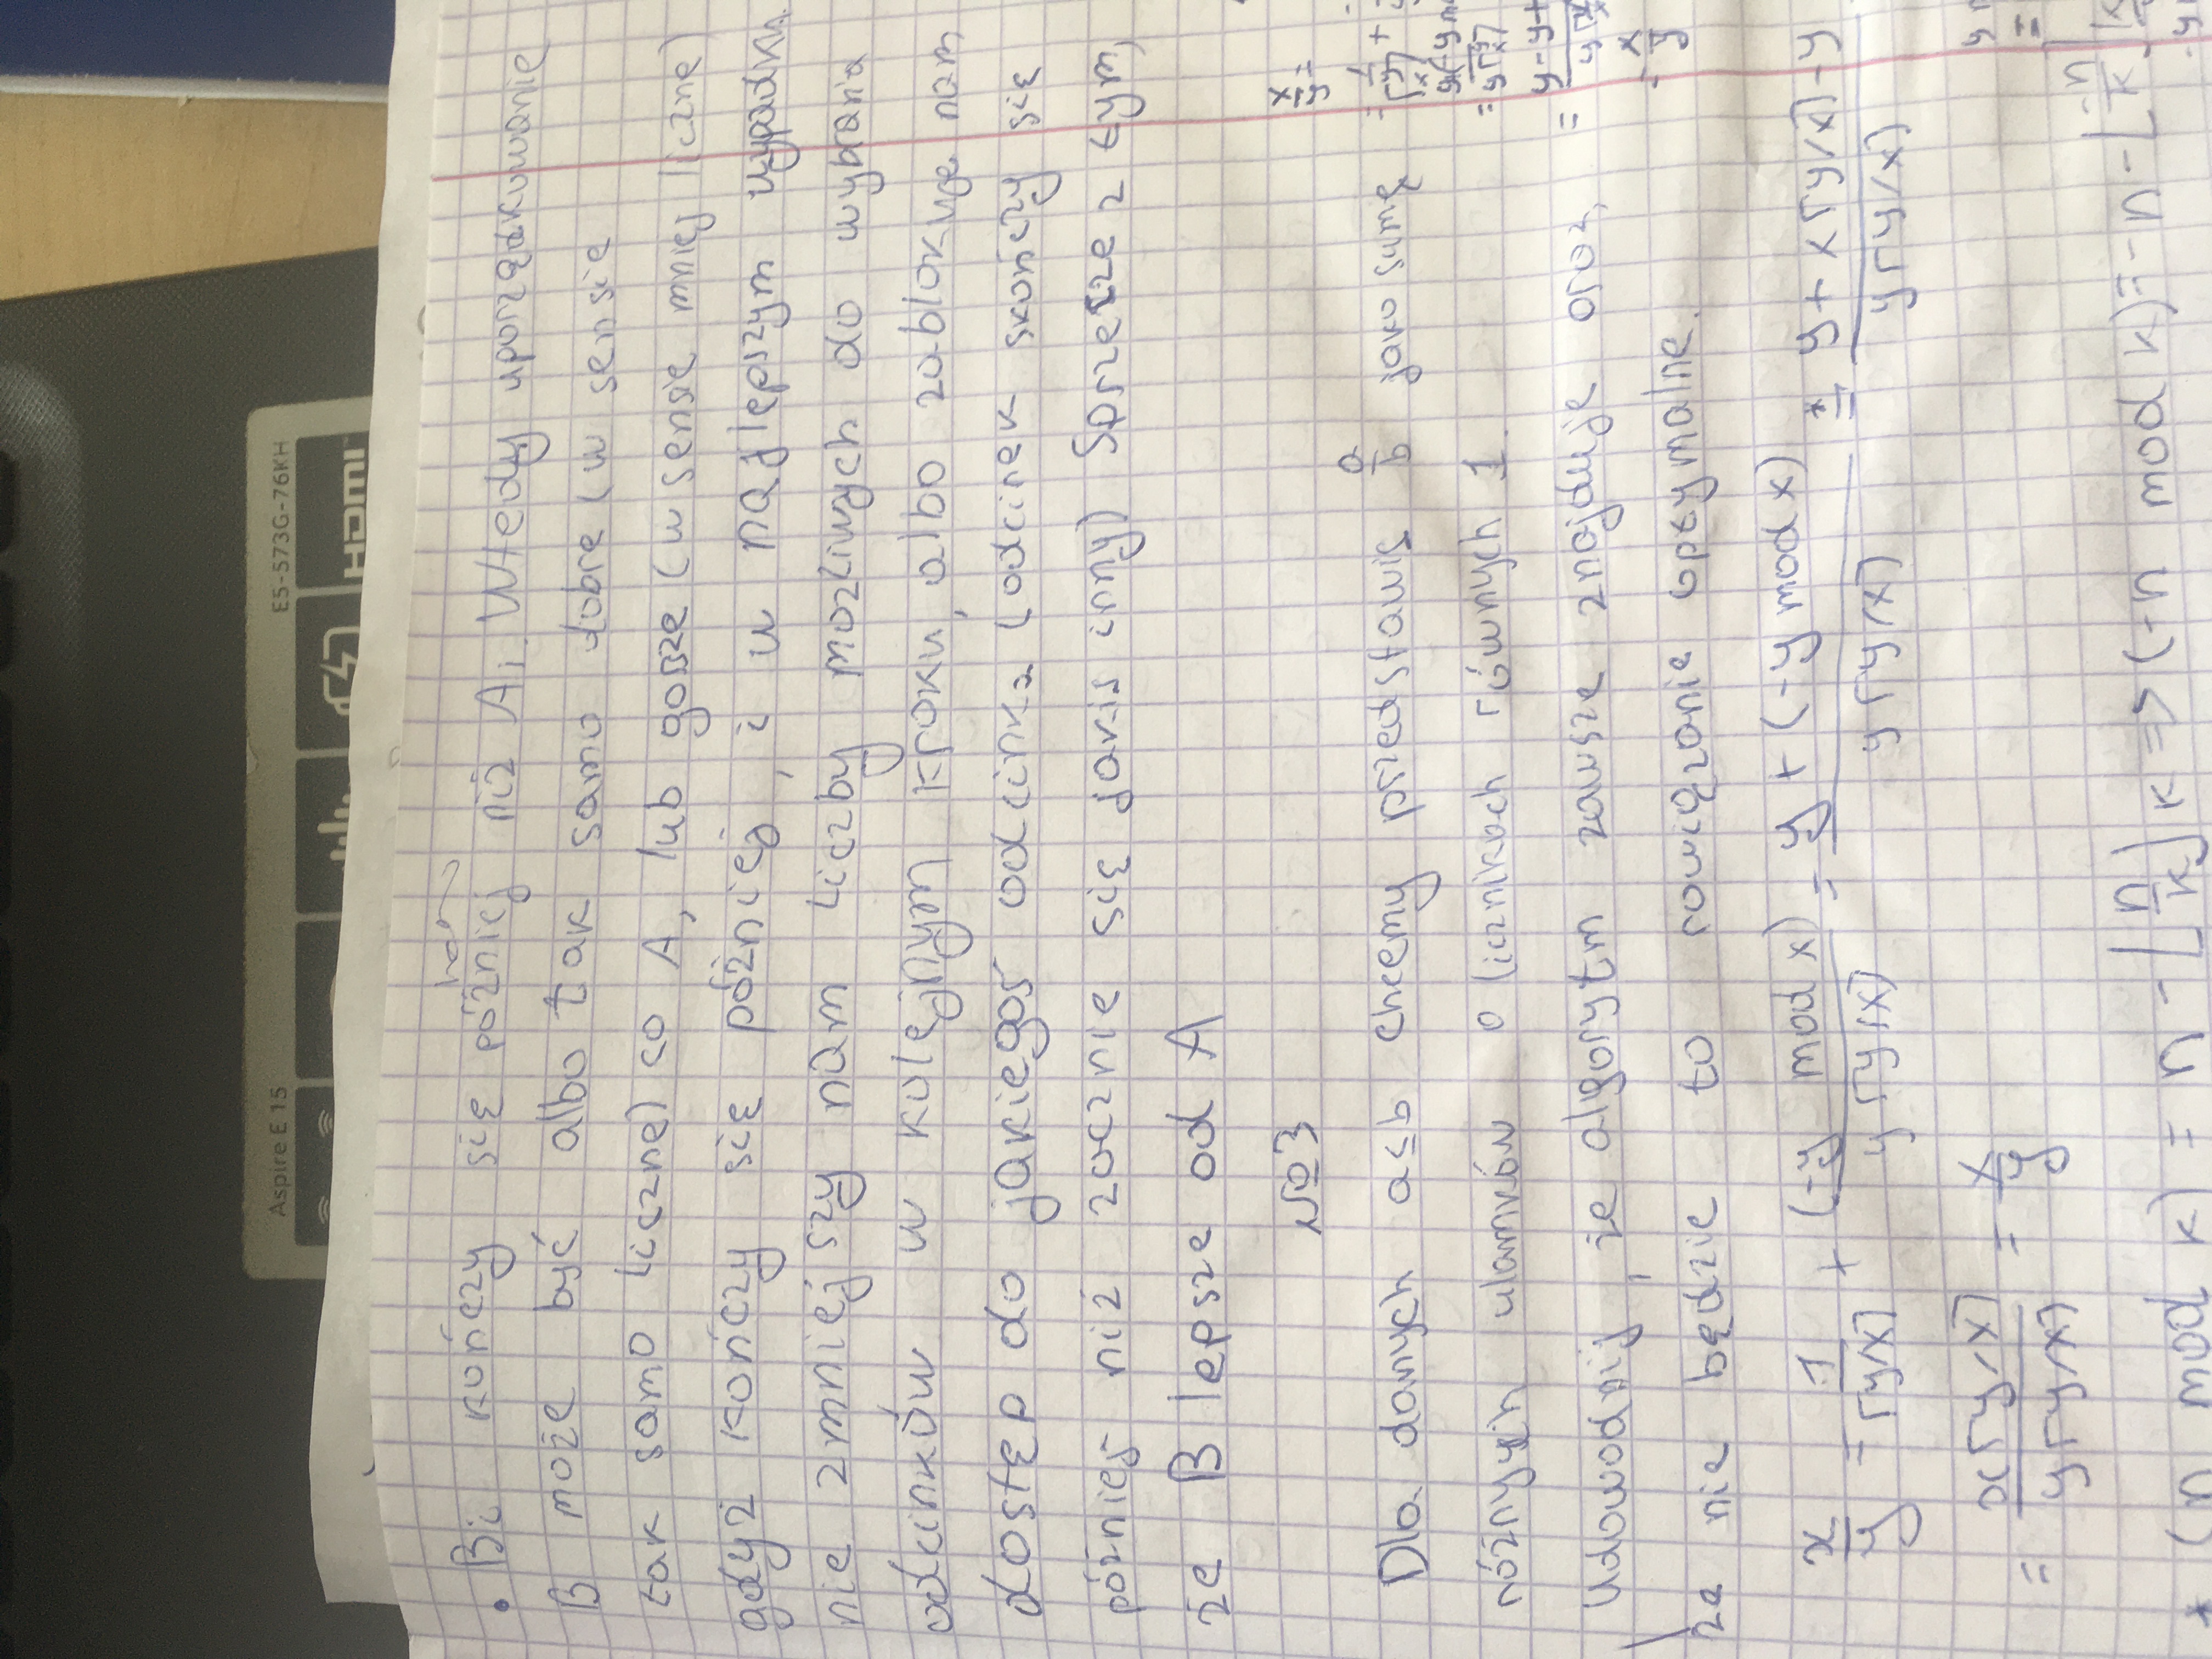 Aspire E 15
E5-573G-76KH
HDMI
• Bi kończy się później niż Ai. Wtedy uporządkowanie
B może być albo tak samo dobre (w sensie
tak samo liczne) co A, lub gorsze (w sensie mniej liczne)
gdyż kończy się później, i w najlepszym wypadku
nie zmniejszy nam liczby możliwych do wybrania
odcinków w kolejnym kroku, albo zablokuje nam
dostęp do jakiegoś odcinka (odcinek skończy się
później niż zacznie się jakiś inny) Sprzeczne z tym,
że B lepsze od A
№3
Dla danych a≤b chcemy przedstawić a/b jako sumę
różnych ułamków o licznikach równych 1.
Udowodnij, że algorytm zawsze znajduje oraz,
że nie będzie to rowiązanie optymalne.
x/y = 1/⌈y/x⌉ + (-y mod x)/y⌈y/x⌉ = y + (-y mod x)/y⌈y/x⌉ *= y + x⌈y/x⌉ - y/y⌈y/x⌉
= x⌈y/x⌉/y⌈y/x⌉ = x/y
* (n mod k) = n - ⌊n/k⌋k => (-n mod k) = -n - ⌊-n/k